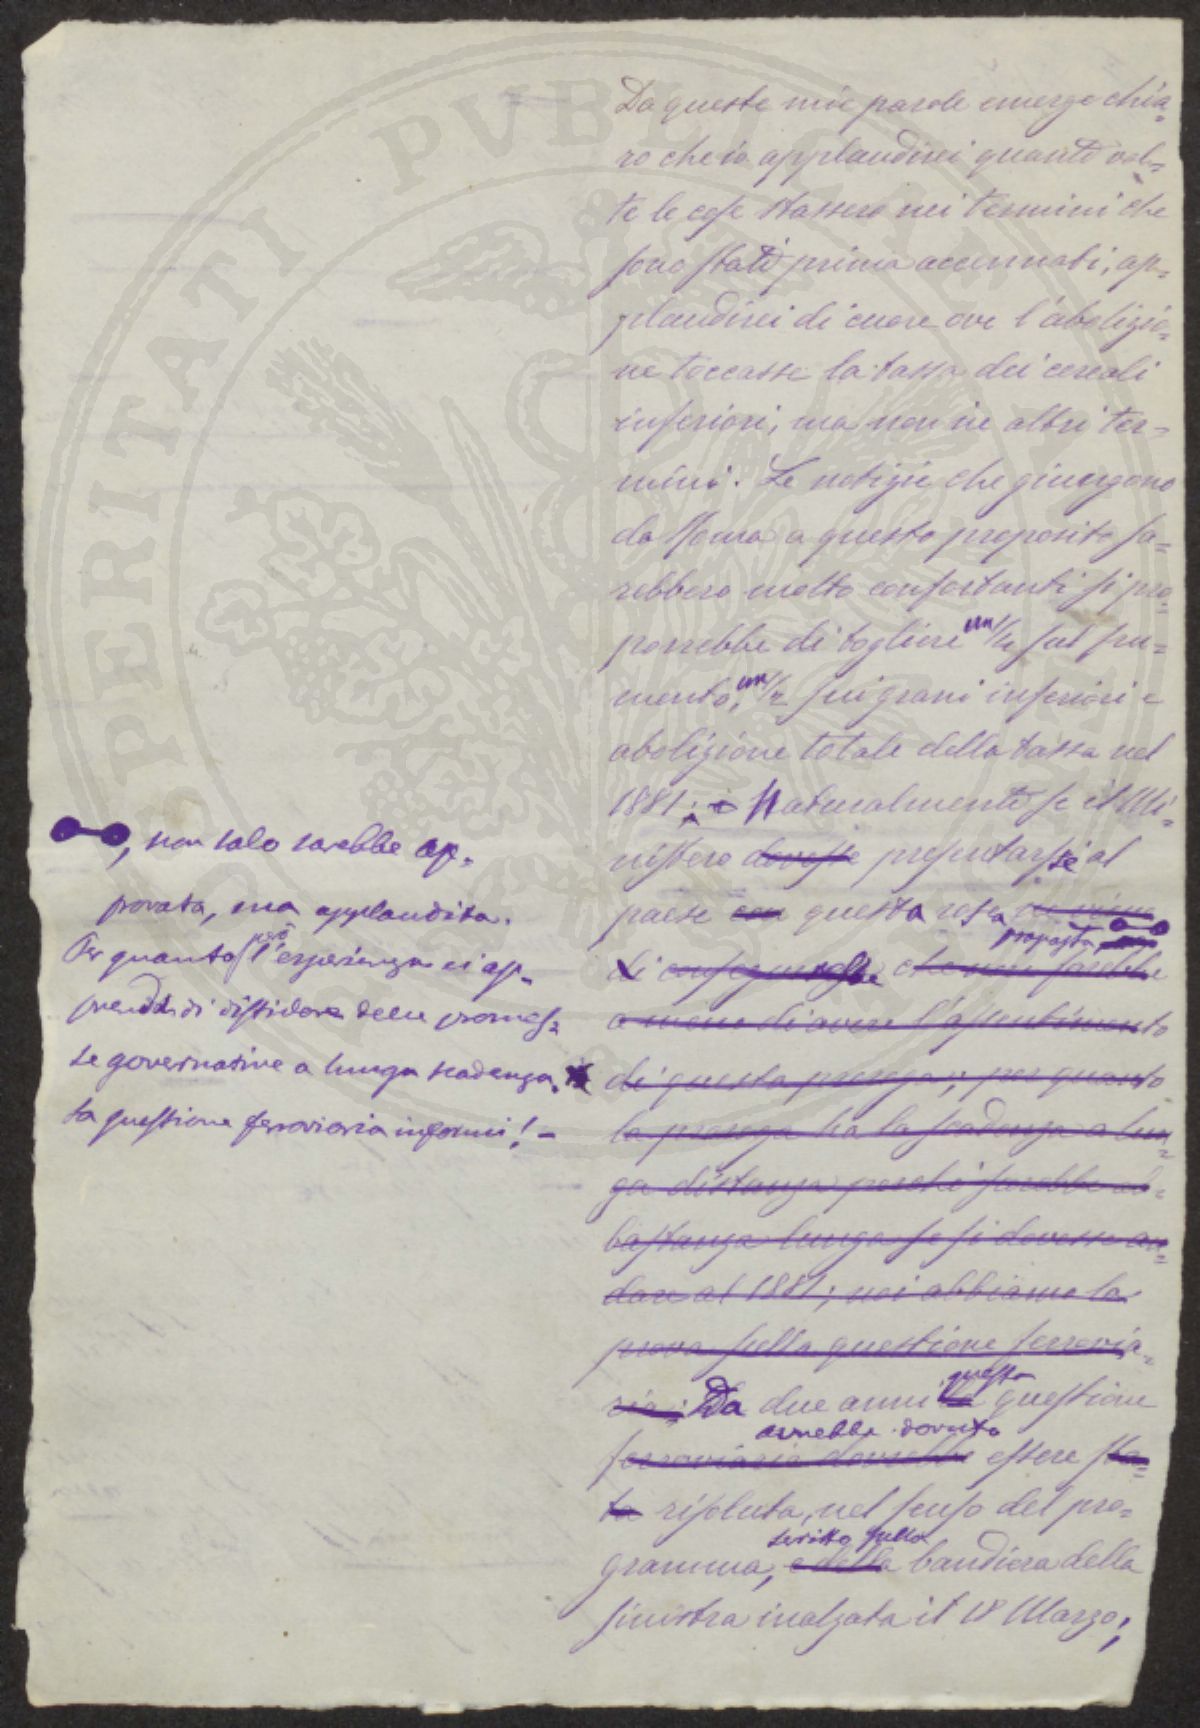 Da queste mie parole emerge chia=
ro che io applaudirei quante vol=
te le cose stassero nei termini che
sono stati prima accennati, ap=
plaudirei di cuore ove l'abolizio=
ne toccasse la tassa dei cereali
inferiori, ma non in altri ter=
mini. Le notizie che giungono
da Roma a questo proposito sa=
rebbero molto confortanti si pro=
porrebbe di togliere un 1/4 sul fru=
mento, un 1/2 sui grani inferiori e
abolizione totale della tassa nel
1881; e Naturalmente se il Mi=
nistero dovesse presentarsi al
paese con questa resa
proposta
di conseguenza che non sarebbe
a meno di avere l'assentimento
di questa proroga; per quanto
la proroga ha la scadenza a lun=
ga distanza perché sarebbe ab=
bastanza lunga se si dovesse an=
dare al 1881; noi abbiamo la
prova nella questione ferrovia=
ria; Da due anni la questa questione
avrebbe dovuto
ferroviaria dovrebbe essere sta=
ta risoluta, nel senso del pro=
scritto sulla
gramma, e della bandiera della
sinistra inalzata il 18 Marzo;
, non solo sarebbe ap=
provata, ma applaudita.
Per quanto però l'esperienza ci ap=
prenda di diffidare delle promes=
se governative a lunga scadenza.
La questione ferroviaria informi! -
PROSPERITATI PVBLICAE